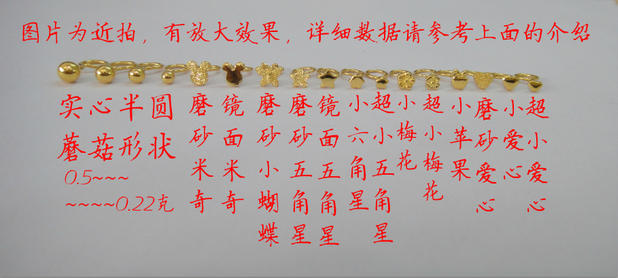 图片为近拍，有放大效果，详细数据请参考上面的介绍
实心半圆
蘑菇形状
0.5~~~
~~~~0.22克
磨砂米奇
镜面米奇
磨砂小蝴蝶
磨砂五角星
镜面五角星
小六角星
超小五角星
小梅花
超小梅花
小苹果
磨砂爱心
小爱心
超小爱心